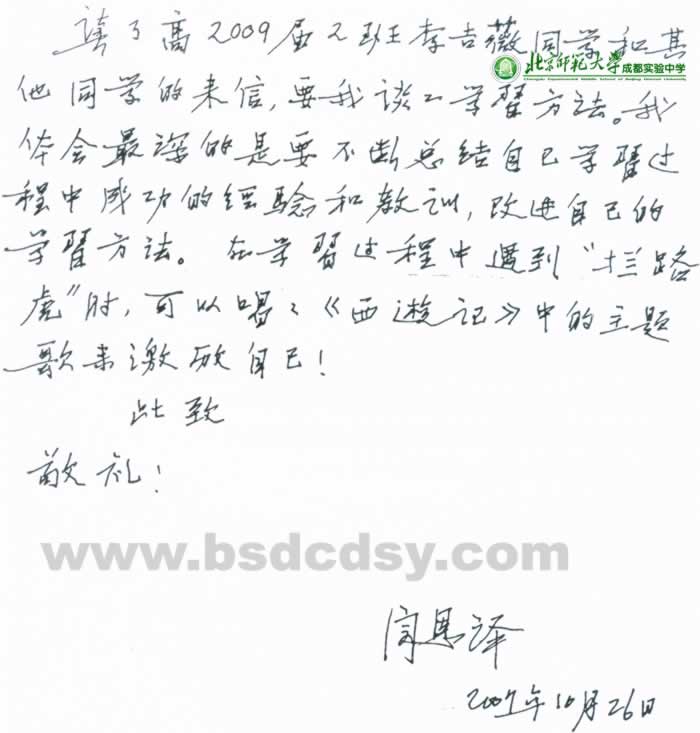 读了高2009届2班李吉薇同学和其
北京师范大学成都实验中学
他同学的来信,要我谈谈学习方法。我
体会最深的是要不断总结自己学习过
程中成功的经验和教训,改进自己的
学習方法。在学習过程中遇到“拦路
虎”时,可以唱唱《西遊记》中的主题
歌来激励自己!
此致
敬礼!
www.bsdcdsy.com
闫恩泽
2007年10月26日